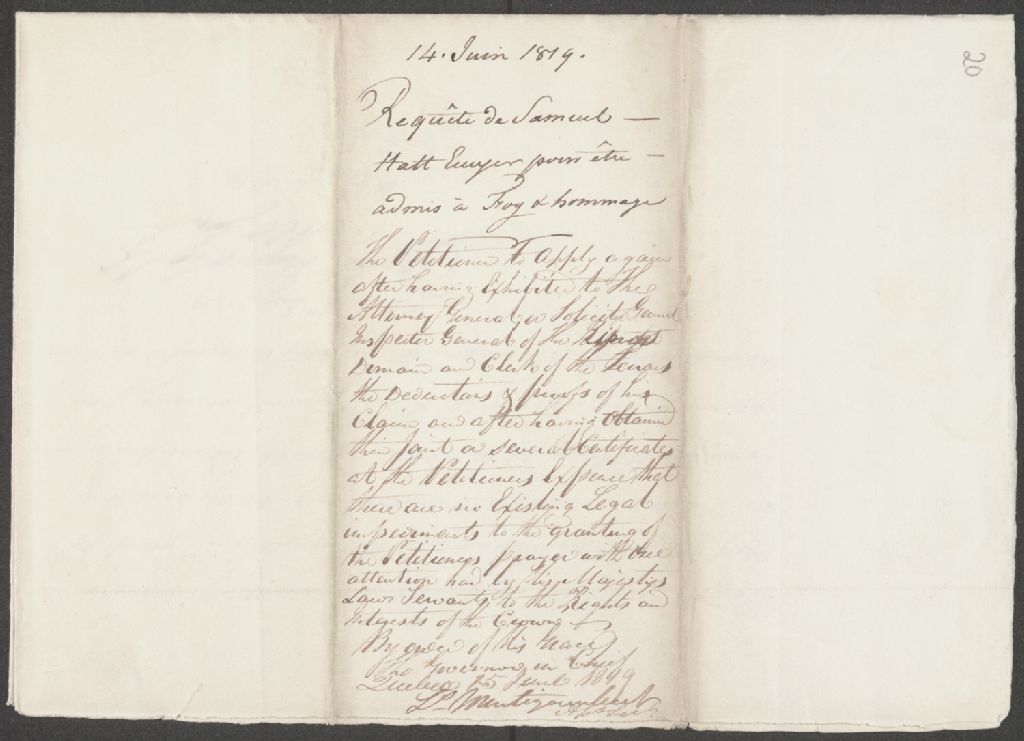 20
14. Juin 1819.
Requête de Samuel —
Hatt Ecuyer pour être —
admis à Foy & hommage
The Petitioner To Apply again
after having Exhibited to the
Attorney General or Solicitor General
Inspector General of the
Domain and Clerk of the Terrars
the Deductions & proofs of his
Claim and after having Obtained
their Joint or several Certificates
at the Petitioners Expence that
there are no Existing Legal
impediments to the Granting of
the Petitioners prayer with due
attention had by His Majestys
Law Servants to the Rights and
Interests of the Crown
By order of His Grace
The Governor in Chief
Quebec 15 June 1819
Ls Montizambert